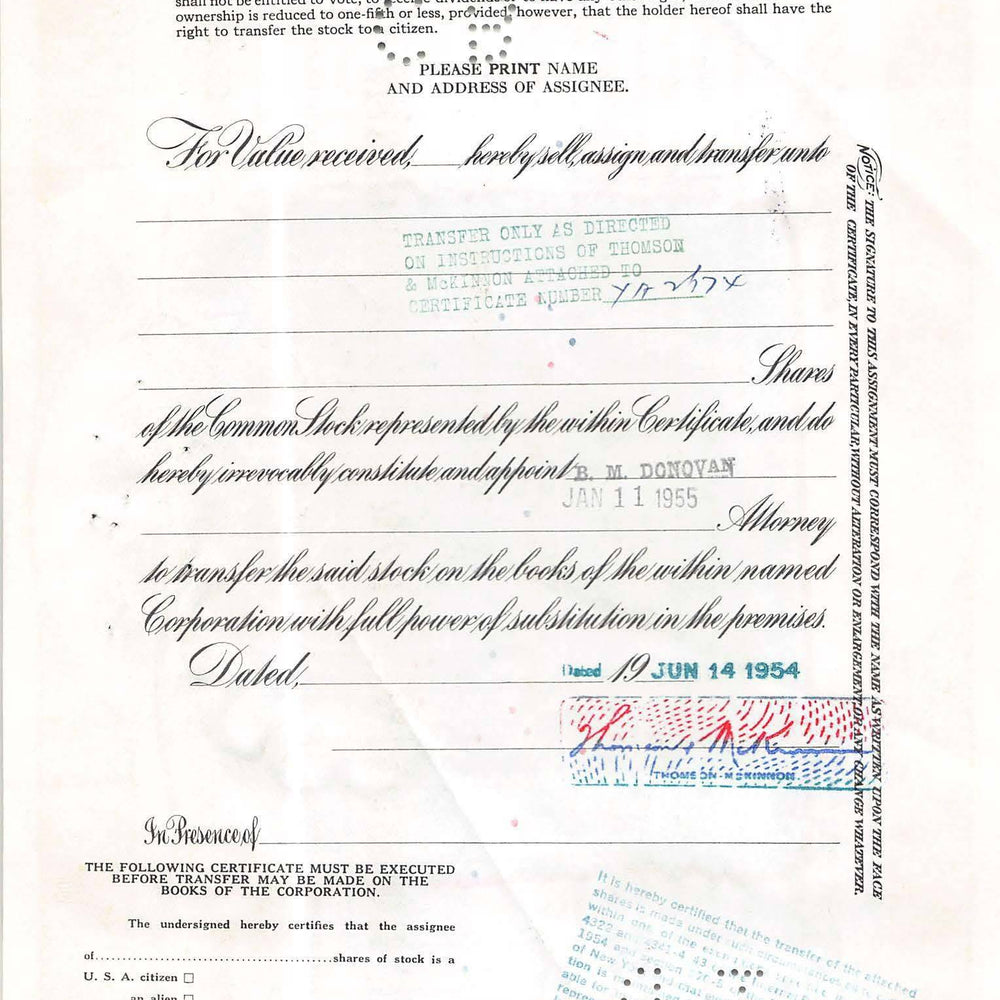 ownership is reduced to one-fifth or less, provided, however, that the holder hereof shall have the
right to transfer the stock to a citizen.
PLEASE PRINT NAME
AND ADDRESS OF ASSIGNEE.
For Value received, hereby sell, assign and transfer unto
TRANSFER ONLY AS DIRECTED
ON INSTRUCTIONS OF THOMSON
& McKINNON ATTACHED TO
CERTIFICATE NUMBER
Shares
of the Common Stock represented by the within Certificate, and do
hereby irrevocably constitute and appoint B. M. DONOVAN
JAN 11 1955
Attorney
to transfer the said stock on the books of the within named
Corporation with full power of substitution in the premises.
Dated, Dated 19 JUN 14 1954
Thomson & McKinnon
THOMSON & McKINNON
In Presence of
THE FOLLOWING CERTIFICATE MUST BE EXECUTED
BEFORE TRANSFER MAY BE MADE ON THE
BOOKS OF THE CORPORATION.
The undersigned hereby certifies that the assignee
of..............................shares of stock is a
U. S. A. citizen ☐
an alien ☐
NOTICE: THE SIGNATURE TO THIS ASSIGNMENT MUST CORRESPOND WITH THE NAME AS WRITTEN UPON THE FACE
OF THE CERTIFICATE, IN EVERY PARTICULAR, WITHOUT ALTERATION OR ENLARGEMENT, OR ANY CHANGE WHATEVER.
It is hereby certified that the transfer of the attached
shares is made under such circumstances
within one of the
4322 and 4341-4 43
1954 and section 270-5
of New Y
tion is
able for
repre